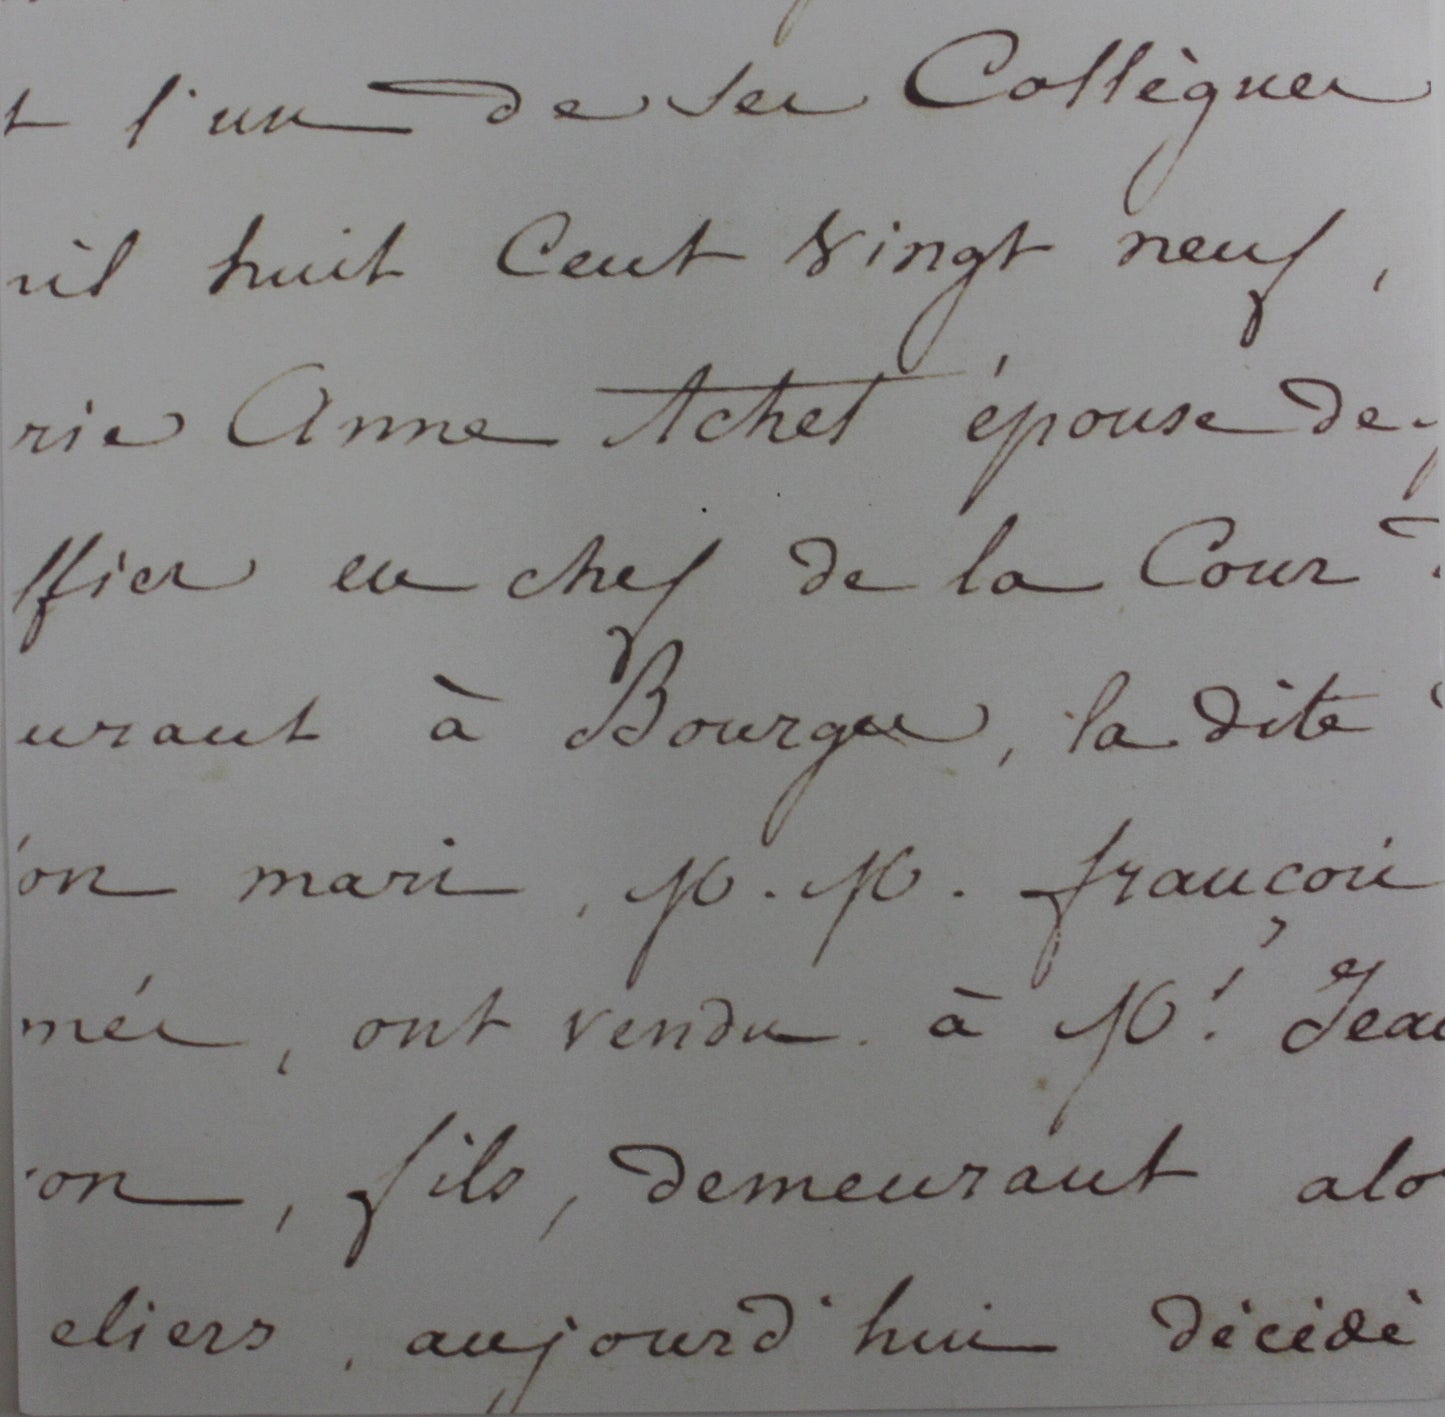 t l'un de ses Collègues
il huit Cent vingt neuf,
rie Anne Achet épouse de
ffier en chef de la Cour
urant à Bourges, la dite
on mari, M. M. françois
més, ont vendu à Mr. Jea
on, fils, demeurant alo
eliers, aujourd'hui décédé